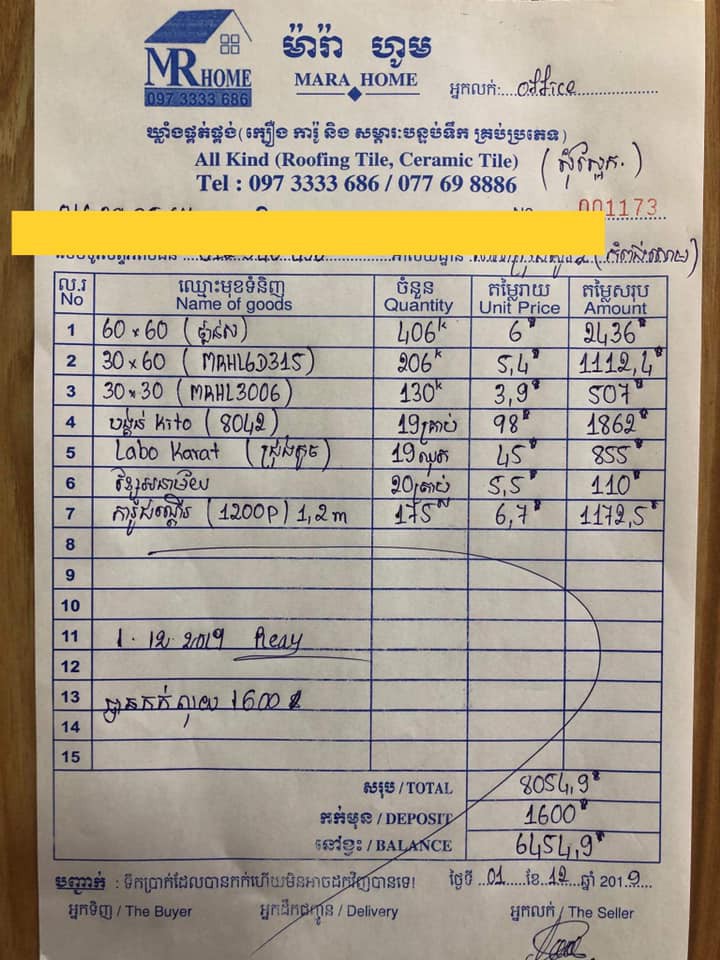 MR HOME
097 3333 686
ម៉ារ៉ា ហូម
MARA HOME
អ្នកលក់: office
ឃ្លាំងផ្គត់ផ្គង់(ក្បឿង ការ៉ូ និង សម្ភារៈបន្ទប់ទឹក គ្រប់ប្រភេទ)
All Kind (Roofing Tile, Ceramic Tile)
Tel : 097 3333 686 / 077 69 8886
001173
ល.រ ឈ្មោះមុខទំនិញ ចំនួន តម្លៃរាយ តម្លៃសរុប
No Name of goods Quantity Unit Price Amount
1 60 x 60 406k 6$ 2436$
2 30 x 60 (MRHL6D315) 206k 5,4$ 1112,4$
3 30 x 30 (MRHL3006) 130k 3,9$ 507$
4 បង្គន់ Kito (8042) 19គ្រាប់ 98$ 1862$
5 Labo Karat (ជ្រុងតូច) 19ឈុត 45$ 855$
6 ខ្សែអនាម័យ 20គ្រាប់ 5,5$ 110$
7 ការ៉ូជណ្តើរ (1200P) 1,2m 175 6,7$ 1172,5$
8
9
10
11 1. 12. 2019
12
13 បានកក់លុយ 1600$
14
15
សរុប / TOTAL 8054,9$
កក់មុន / DEPOSIT 1600$
នៅខ្វះ / BALANCE 6454,9$
បញ្ជាក់ : ទឹកប្រាក់ដែលបានកក់ហើយមិនអាចដកវិញបានទេ! ថ្ងៃទី 01 ខែ 12 ឆ្នាំ 2019
អ្នកទិញ / The Buyer អ្នកដឹកជញ្ជូន / Delivery អ្នកលក់ / The Seller